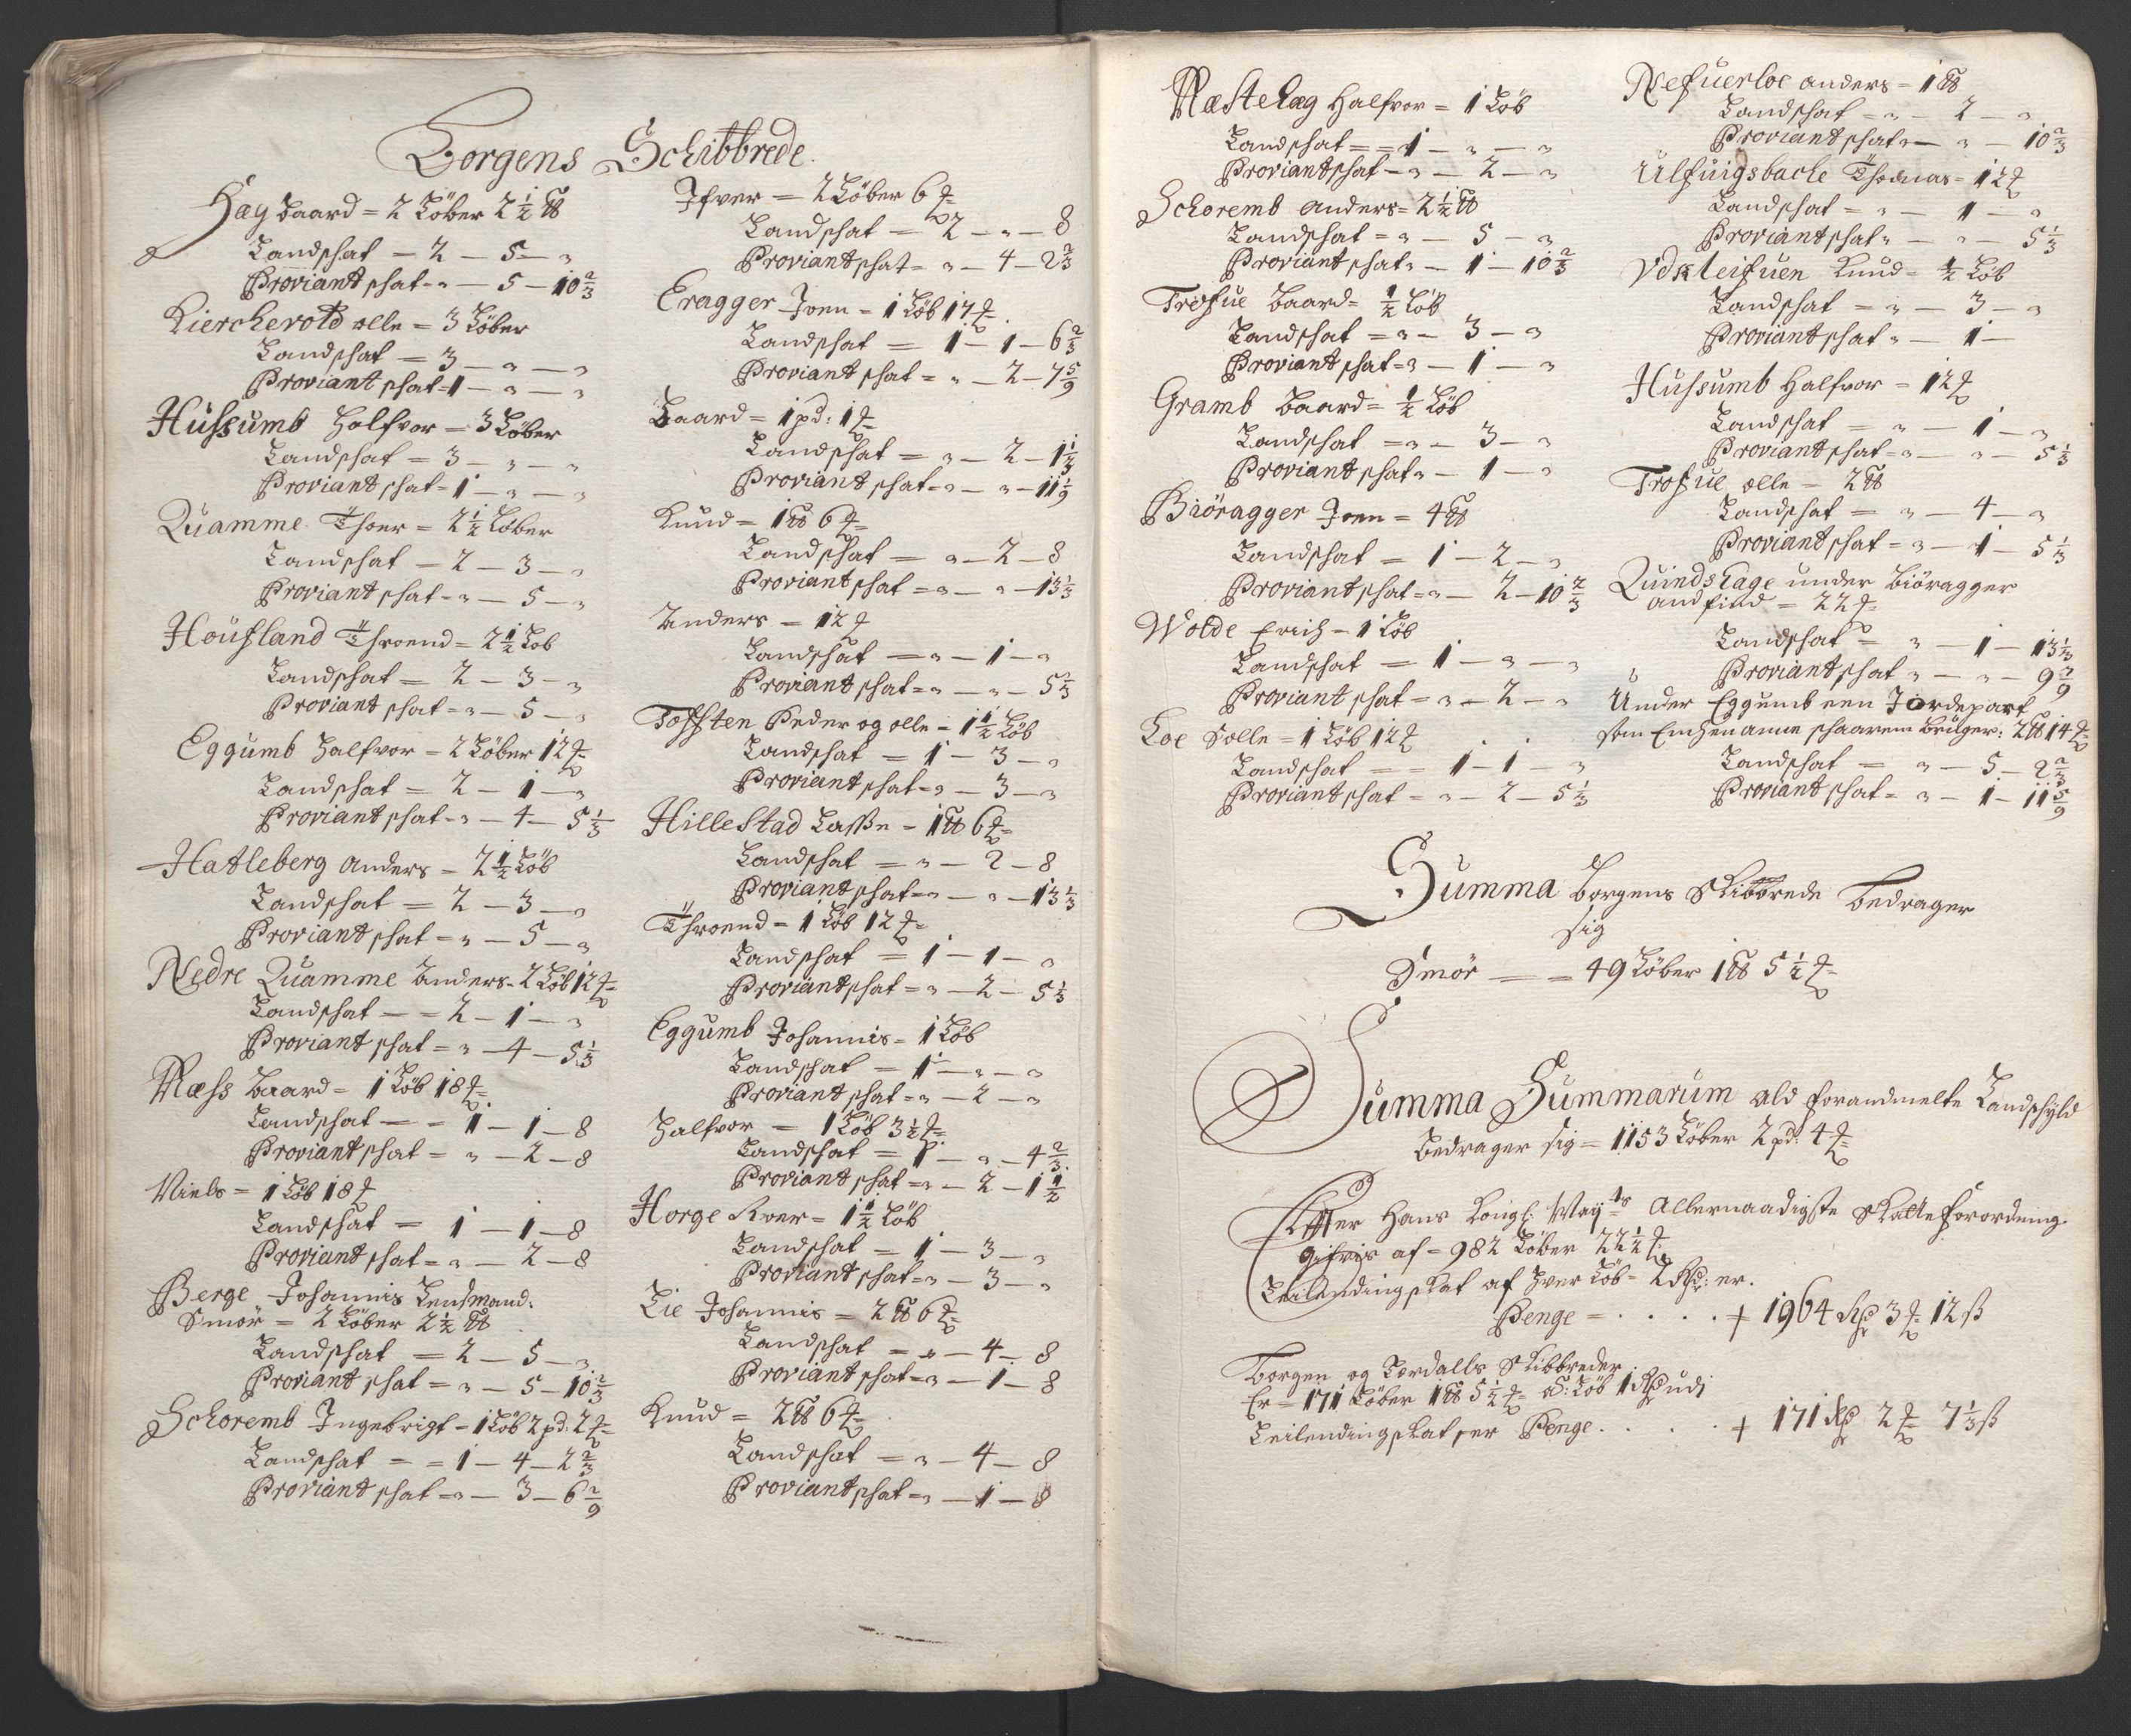 Borgens Schibbrede.
Hæg Baard = 2 Löber 2 1/2 ℔
Landschat — 2 — 5 — „
Proviantschat = „ — 5 — 10 2/3
Kierchevold olle = 3 Löber
Landschat = 3 — „ — „
Proviantschat = 1 — „ — „
Hussumb Halfvor = 3 Löber
Landschat = 3 — „ — „
Proviantschat = 1 — „ — „
Quamme Thoer = 2 1/2 Löber
Landschat — 2 — 3 — „
Proviantschat = „ — 5 — „
Houfland Throend = 2 1/2 Löb
Landschat = 2 — 3 — „
Proviantschat = „ — 5 — „
Eggumb Halfvor = 2 Löber 12 ℔
Landschat = 2 — 1 — „
Proviantschat = „ — 4 — 5 1/3
Hatleberg Anders = 2 1/2 Löb
Landschat = 2 — 3 — „
Proviantschat = „ — 5 — „
Nedre Quamme Anders = 2 Löb 12 ℔
Landschat — = 2 — 1 — „
Proviantschat = „ — 4 — 5 1/3
Næss Baard = 1 Löb 18 ℔
Landschat — = 1 — 1 — 8
Proviantschat = „ — 2 — 8
Niels = 1 Löb 18 ℔
Landschat = 1 — 1 — 8
Proviantschat = „ — 2 — 8
Berge Johannis Lensmand:
Smör = 2 Löber 2 1/2 ℔
Landschat = 2 — 5 — „
Proviantschat = „ — 5 — 10 2/3
Schoremb Ingebrigt = 1 Löb 2 pd: 2 ℔
Landschat = = 1 — 4 — 2 2/3
Proviantschat = „ — 3 — 6 2/9
Ifver = 2 Löber 6 ℔
Landschat = 2 — „ — 8
Proviantschat = „ — 4 — 2 2/3
Eragger Joen = 1 Löb 17 ℔
Landschat = 1 — 1 — 6 2/3
Proviantschat = „ — 2 — 7 5/9
Baard = 1 pd: 1 ℔
Landschat = „ — 2 — 1 1/3
Proviantschat = „ — „ — 11 1/9
Knud = 1 ℔ 6 ℔
Landschat = „ — 2 — 8
Proviantschat = „ — „ — 13 1/3
Anders = 12 ℔
Landschat = „ — 1 — „
Proviantschat = „ — „ — 5 1/3
Tofften Peder og olle = 1 1/2 Löb
Landschat = 1 — 3 — „
Proviantschat = „ — 3 — „
Hillestad Lasse = 1 ℔ 6 ℔
Landschat = „ — 2 — 8
Proviantschat = „ — „ — 13 1/3
Throend = 1 Löb 12 ℔
Landschat = 1 — 1 — „
Proviantschat = „ — 2 — 5 1/3
Eggumb Johannis = 1 Löb
Landschat = 1 — „ — „
Proviantschat = „ — 2 — „
Halfvor = 1 Löb 3 1/2 ℔
Landschat = 1 — „ — 4 2/3
Proviantschat = „ — 2 — 1 1/2
Horge Roer = 1 1/2 Löb
Landschat = 1 — 3 — „
Proviantschat = „ — 3 — „
Lie Johannis = 2 ℔ 6 ℔
Landschat = „ — 4 — 8
Proviantschat = „ — 1 — 8
Knud = 2 ℔ 6 ℔
Landschat = „ — 4 — 8
Proviantschat = „ — 1 — 8
Næstelæg Halfvor = 1 Löb
Landschat = = 1 — „ — „
Proviantschat = „ — 2 — „
Schoremb Anders = 2 1/2 ℔
Landschat = „ — 5 — „
Proviantschat „ — 1 — 10 2/3
Trefue Baard = 1/2 Löb
Landschat = „ — 3 — „
Proviantschat = „ — 1 — „
Gramb Baard = 1/2 Löb
Landschat = „ — 3 — „
Proviantschat „ — 1 — „
Biöragger Joen = 4 ℔
Landschat = 1 — 2 — „
Proviantschat = „ — 2 — 10 2/3
Wolde Erich = 1 Löb
Landschat = 1 — „ — „
Proviantschat = „ — 2 — „
Loe Solle = 1 Löb 12 ℔
Landschat = = 1 — 1 — „
Proviantschat = „ — 2 — 5 1/3
Nefuerloe anders = 1 ℔
Landschat = „ — 2 — „
Proviantschat „ — „ — 10 2/3
Ulfuigsbache Thomas = 12 ℔
Landschat = „ — 1 — „
Proviantschat „ — „ — 5 1/3
Udkleifuen Knud = 1/2 Löb
Landschat = „ — 3 — „
Proviantschat „ — 1 —
Hussumb Halfvor = 12 ℔
Landschat = „ — 1 — „
Proviantschat = „ — „ — 5 1/3
Trofue olle = 2 ℔
Landschat = „ — 4 — „
Proviantschat = „ — 1 — 5 1/3
Quindshage under Biöragger
andfind = 22 ℔
Landschat = „ — 1 — 13 1/3
Proviantschat „ — „ — 9 7/9
Under Eggumb een Jordepart
som Enchen anne schaarem Bruger: 2 ℔ 14 ℔
Landschat = „ — 5 — 2 2/3
Proviantschat = „ — 1 — 11 5/9
Summa Borgens Skibbrede Bedrager
sig
Smör — = 49 Löber 1 ℔ 5 1/2 ℔
Summa Summarum ald forandmelte Landschyld
Bedrager sig = 1153 Löber 2 pd: 4 ℔
Efter Hans Kongl: May:ts Allernaadigste Skatte forordning
gifvis af = 982 Löber 22 1/2 ℔
Leilendingskat af hver Löb = 2 Rd: er.
Penge = . . . . + 1964 Rd 3 ℔ 12 ß
Borgen og Lærdalls Skibbreder
Er = 171 Löber 1 ℔ 5 1/2 ℔ á: Löb 1 Rd udi
Leilendingskat er Penge . . . . + 171 Rd 2 ℔ 7 1/3 ß